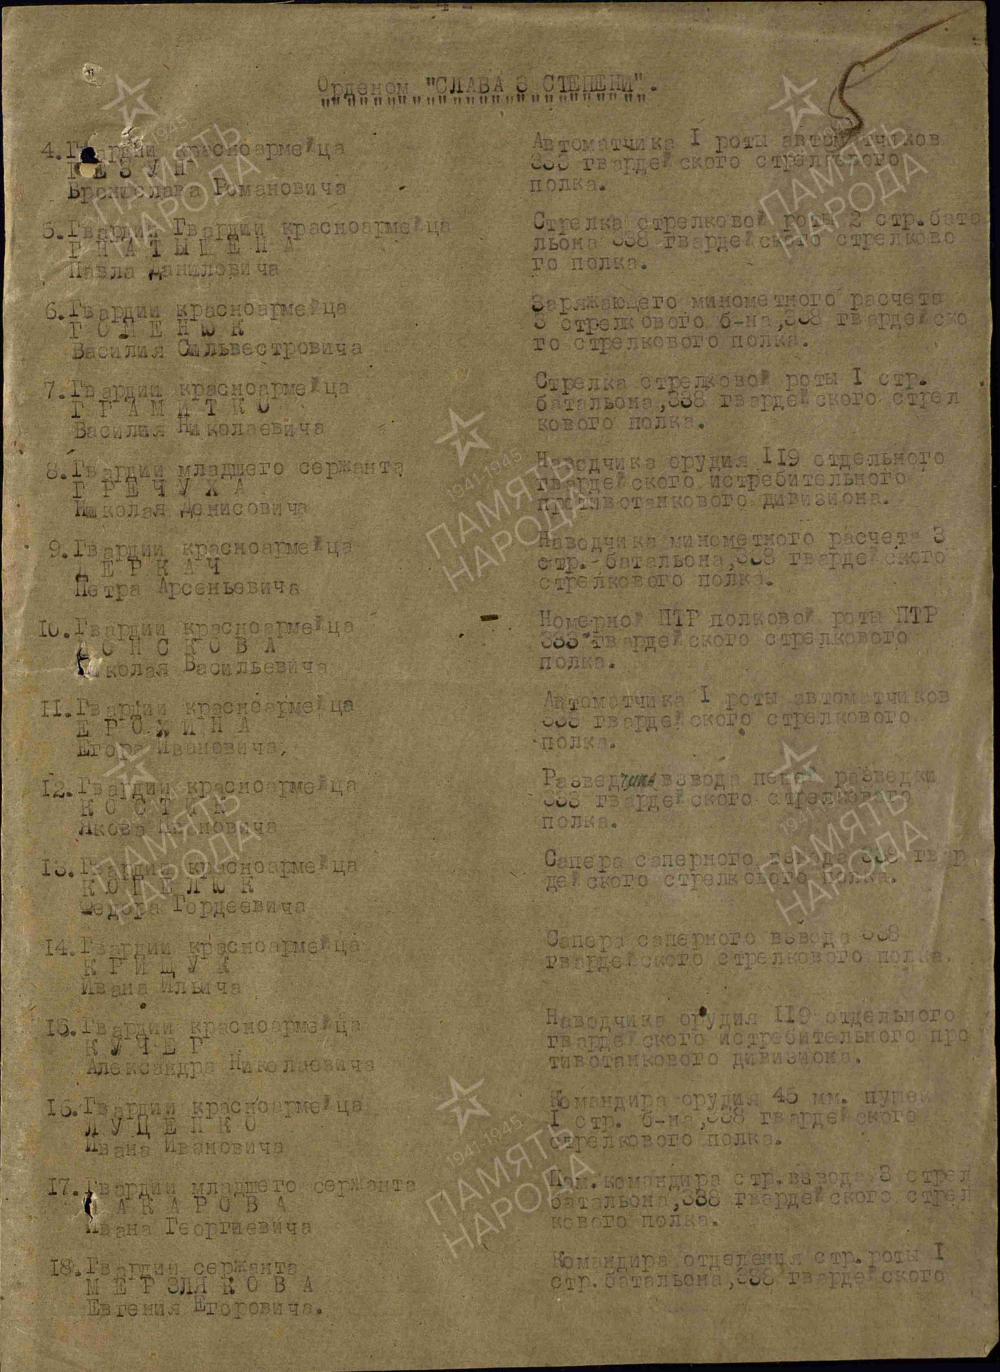 - 4 -
5
Орденом "СЛАВА 3 СТЕПЕНИ".
4. Гвардии красноармейца
Бронислава Романовича
Автоматчика I роты автоматчиков
383 гвардейского стрелкового
полка.
5. Гвардии Гвардии красноармейца
ГНАТЫШЕНА
Павла Даниловича
Стрелка стрелковой роты 2 стр.бата
льона 388 гвардейского стрелково
го полка.
6. Гвардии красноармейца
ГОПЕНЮК
Василия Сильвестровича
Заряжающего минометного расчета
3 стрелкового б-на,388 гвардейско
го стрелкового полка.
7. Гвардии красноармейца
ГРАМИТКО
Василия Николаевича
Стрелка стрелковой роты I стр.
батальона,388 гвардейского стрел
кового полка.
8. Гвардии младшего сержанта
ГРЕЧУХА
Николая Денисовича
Наводчика орудия II9 отдельного
гвардейского истребительного
противотанкового дивизиона.
9. Гвардии красноармейца
ДЕРКАЧ
Петра Арсеньевича
Наводчика минометного расчета 3
стр. батальона,388 гвардейского
стрелкового полка.
10. Гвардии красноармейца
ДОНСКОВА
Николая Васильевича
Номерной ПТР полковой роты ПТР
383 гвардейского стрелкового
полка.
11. Гвардии красноармейца
ЕРОХИНА
Егора Ивановича,
Автоматчика I роты автоматчиков
388 гвардейского стрелкового
полка.
12. Гвардии красноармейца
КОСТЮК
Якова
Разведчика взвода пешей разведки
388 гвардейского стрелкового
полка.
13. Гвардии красноармейца
КОПЕЛЮК
Федора Гордеевича
Сапера саперного взвода 388 гвар
дейского стрелкового полка.
14. Гвардии красноармейца
КРИЩУК
Ивана Ильича
Сапера саперного взвода 388
гвардейского стрелкового полка.
15. Гвардии красноармейца
КУЧЕР
Александра Николаевича
Наводчика орудия II9 отдельного
гвардейского истребительного про
тивотанкового дивизиона.
16. Гвардии красноармейца
ЛУЦЕНКО
Ивана Ивановича
Командира орудия 45 мм. пушек
I стр. б-на,388 гвардейского
стрелкового полка.
17. Гвардии младшего сержанта
МАКАРОВА
Ивана Георгиевича
Пом.командира стр.взвода 3 стрел
батальона,388 гвардейского стрел
кового полка.
18. Гвардии сержанта
МЕРЗЛЯКОВА
Евгения Егоровича.
Командира отделения стр.роты I
стр.батальона,388 гвардейского
ПАМЯТЬ
НАРОДА
1941-1945